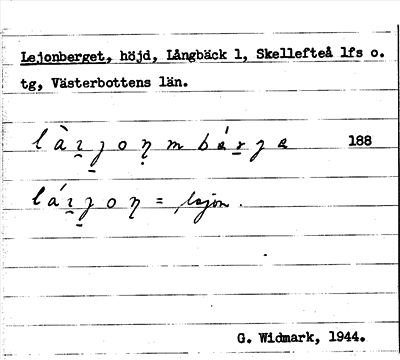 Lejonberget, höjd, Långbäck 1, Skellefteå lfs o.
tg, Västerbottens län.
188
= lejon.
G. Widmark, 1944.